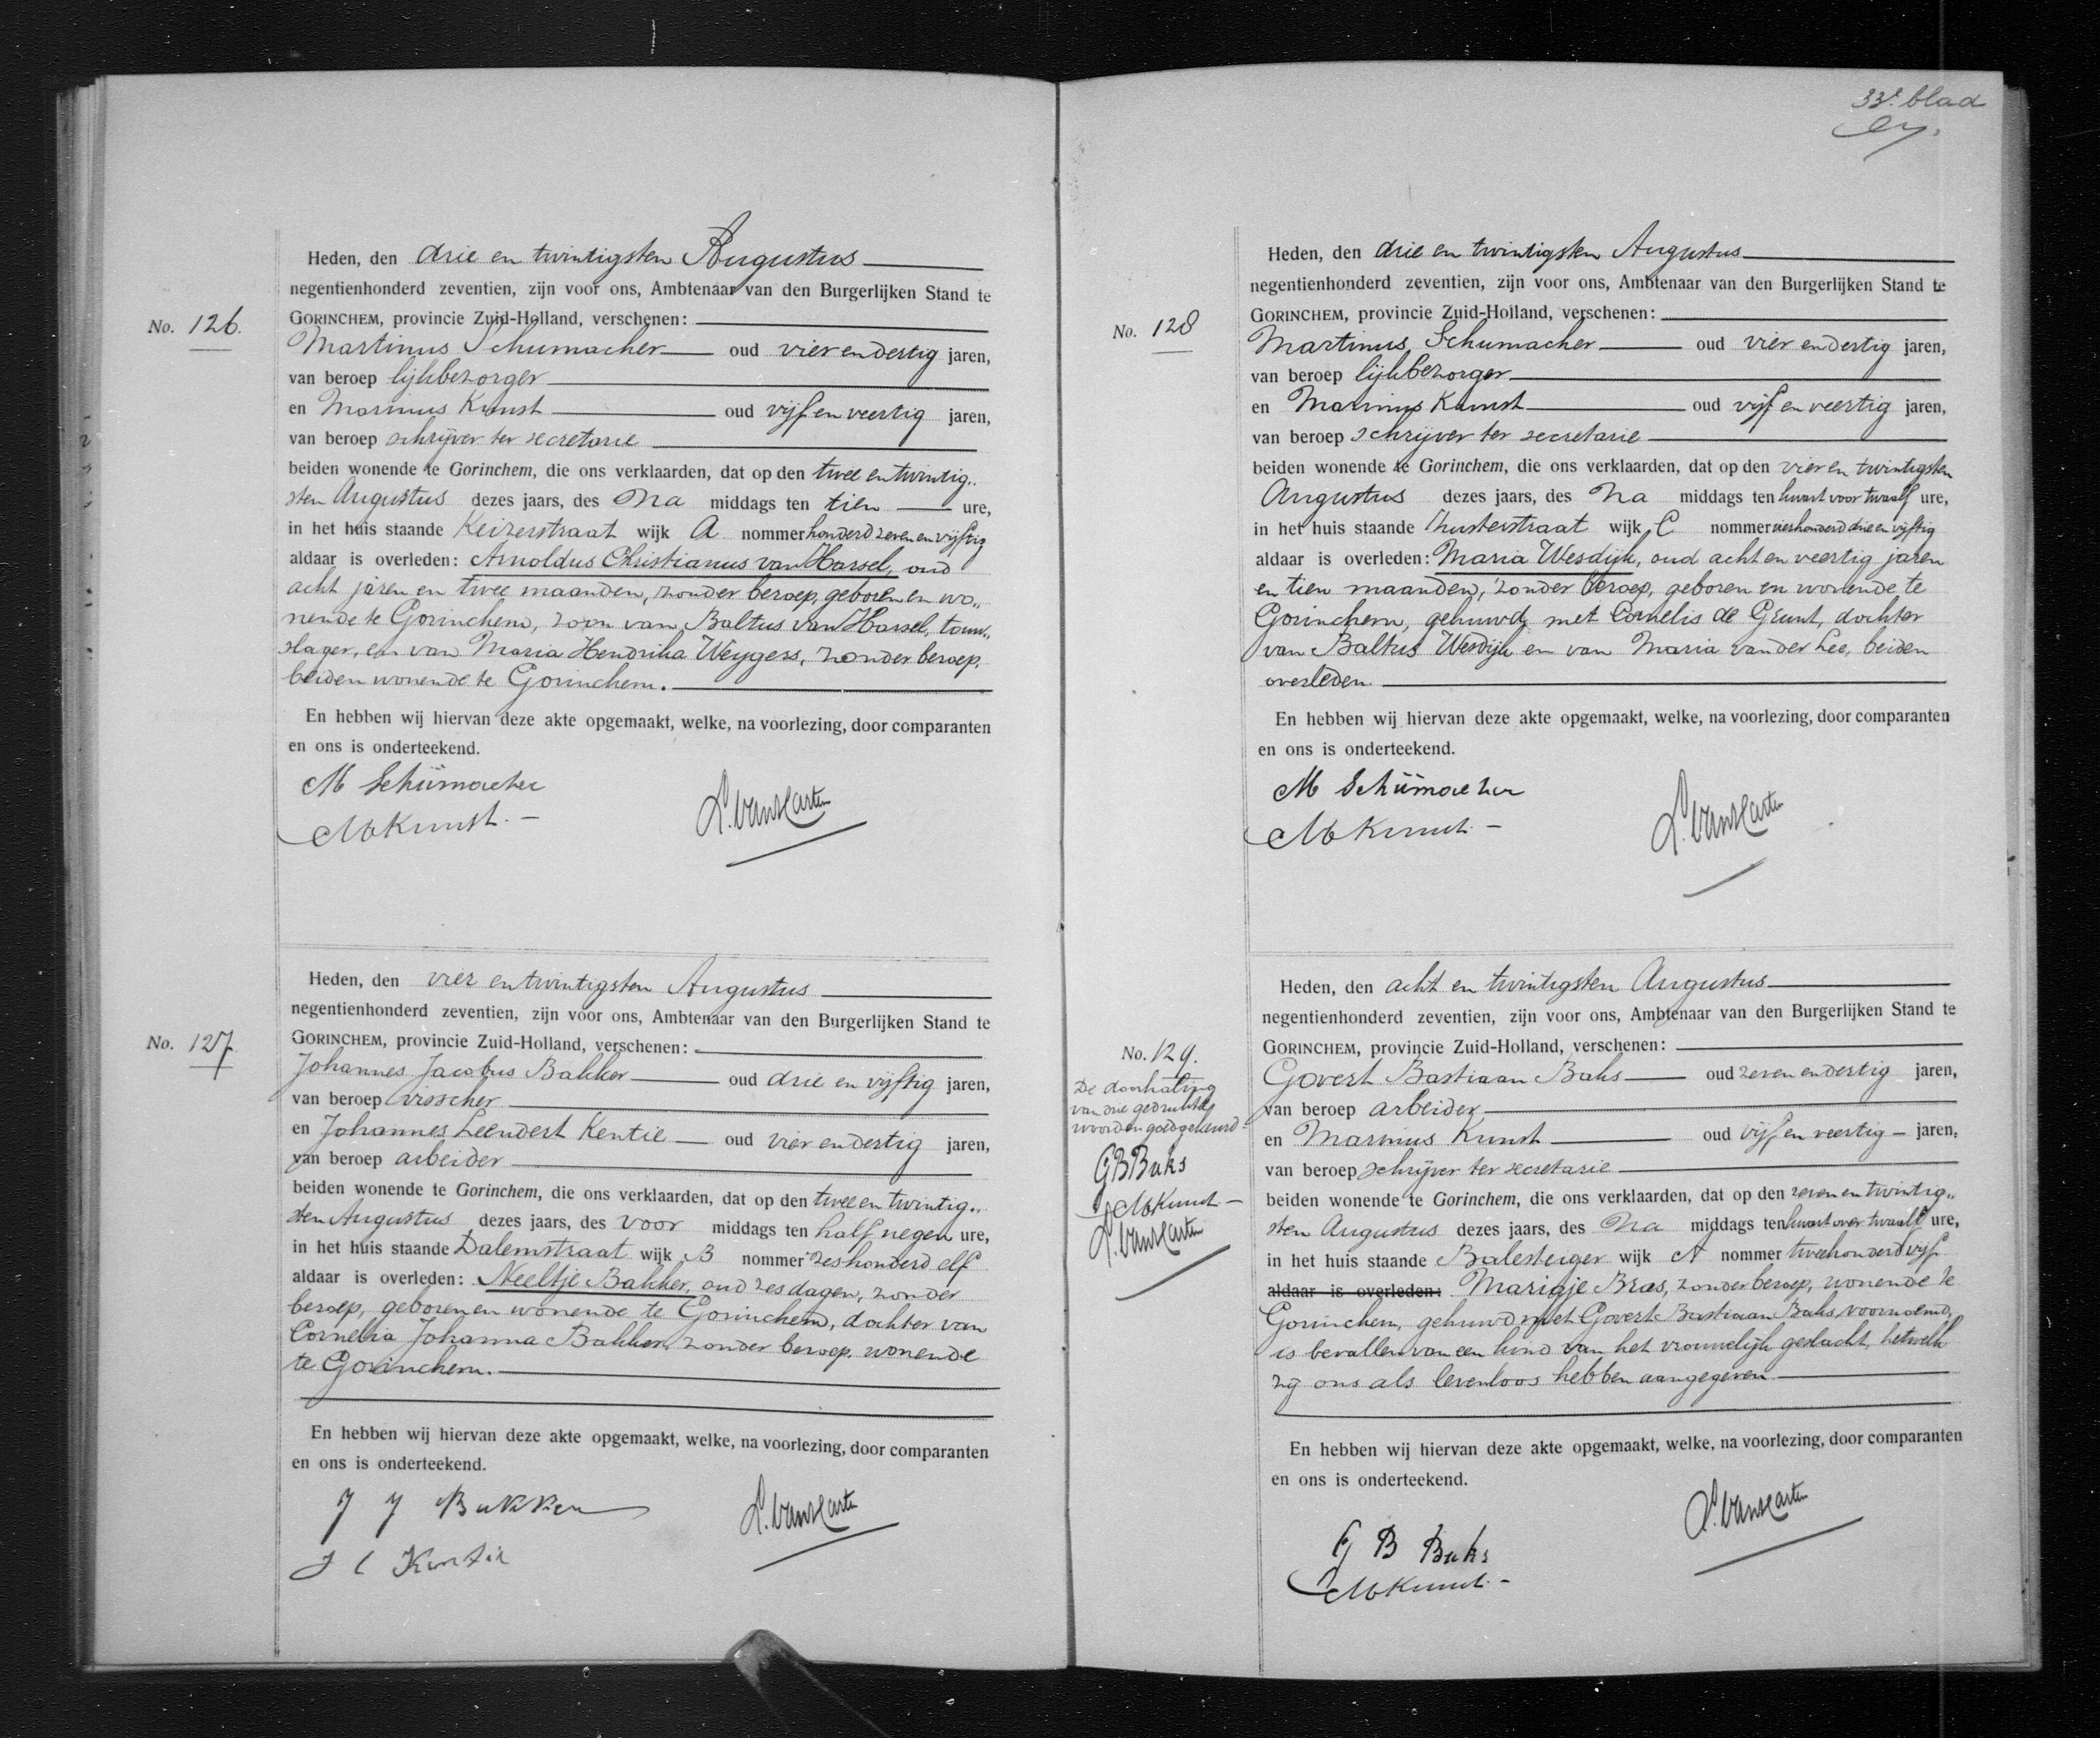 No. 126.
Heden, den drie en twintigsten Augustus
negentienhonderd zeventien, zijn voor ons, Ambtenaar van den Burgerlijken Stand te
GORINCHEM, provincie Zuid-Holland, verschenen:
Martinus Schumacher oud vier en dertig jaren,
van beroep lijkbezorger
en Marinus Kunst oud vijf en veertig jaren,
van beroep schrijver ter secretarie
beiden wonende te Gorinchem, die ons verklaarden, dat op den twee en twintig„
sten Augustus dezes jaars, des Na middags ten tien ure,
in het huis staande Keizerstraat wijk A nommer honderd zeven en vijftig
aldaar is overleden: Arnoldus Christianus van Hassel, oud
acht jaren en twee maanden, zonder beroep, geboren en wo„
nende te Gorinchem, zoon van Baltus van Hassel, touw„
slager, en van Maria Hendrika Weygers, zonder beroep,
beiden wonende te Gorinchem.
En hebben wij hiervan deze akte opgemaakt, welke, na voorlezing, door comparanten
en ons is onderteekend.
M Schümacher
M Kunst. –
No. 127
Heden, den vier en twintigsten Augustus
negentienhonderd zeventien, zijn voor ons, Ambtenaar van den Burgerlijken Stand te
GORINCHEM, provincie Zuid-Holland, verschenen:
Johannes Jacobus Bakker oud drie en vijftig jaren,
van beroep visscher
en Johannes Leendert Kentie oud vier en dertig jaren,
van beroep arbeider
beiden wonende te Gorinchem, die ons verklaarden, dat op den twee en twintig„
sten Augustus dezes jaars, des voor middags ten half negen ure,
in het huis staande Dalemstraat wijk B nommer zeshonderd elf
aldaar is overleden: Neeltje Bakker, oud zes dagen, zonder
beroep, geboren en wonende te Gorinchem, dochter van
Cornelia Johanna Bakker, zonder beroep, wonende
te Gorinchem.
En hebben wij hiervan deze akte opgemaakt, welke, na voorlezing, door comparanten
en ons is onderteekend.
J J Bakker
J L Kentie
33e. blad
No. 128
Heden, den drie en twintigsten Augustus
negentienhonderd zeventien, zijn voor ons, Ambtenaar van den Burgerlijken Stand te
GORINCHEM, provincie Zuid-Holland, verschenen:
Martinus Schumacher oud vier en dertig jaren,
van beroep lijkbezorger
en Marinus Kunst oud vijf en veertig jaren,
van beroep schrijver ter secretarie
beiden wonende te Gorinchem, die ons verklaarden, dat op den vier en twintigsten
Augustus dezes jaars, des Na middags ten kwart voor twaalf ure,
in het huis staande wijk C nommer vierhonderd drie en vijftig
aldaar is overleden: Maria Wesdijk, oud acht en veertig jaren
en tien maanden, zonder beroep, geboren en wonende te
Gorinchem, gehuwd met Cornelis de Grunt, dochter
van Baltus Wesdijk en van Maria van der Lee, beiden
overleden.
En hebben wij hiervan deze akte opgemaakt, welke, na voorlezing, door comparanten
en ons is onderteekend.
M Schümacher
M Kunst. –
No. 129.
De doorhaling
van drie gedrukte
woorden goedgekeurd
GB Baks
M Kunst –
Heden, den acht en twintigsten Augustus
negentienhonderd zeventien, zijn voor ons, Ambtenaar van den Burgerlijken Stand te
GORINCHEM, provincie Zuid-Holland, verschenen:
Govert Bastiaan Baks oud zeven en dertig jaren,
van beroep arbeider
en Marinus Kunst oud vijf en veertig – jaren,
van beroep schrijver ter secretarie
beiden wonende te Gorinchem, die ons verklaarden, dat op den zeven en twintig„
sten Augustus dezes jaars, des Na middags ten kwart over twaalf ure,
in het huis staande Balesteiger wijk A nommer tweehonderd vijf
aldaar is overleden: Marigje Bras, zonder beroep, wonende te
Gorinchem, gehuwd met Govert Bastiaan Baks, voornoemd,
is bevallen van een kind van het vrouwelijk geslacht, hetwelk
zij ons als levenloos hebben aangegeven
En hebben wij hiervan deze akte opgemaakt, welke, na voorlezing, door comparanten
en ons is onderteekend.
G B Baks
M Kunst. –